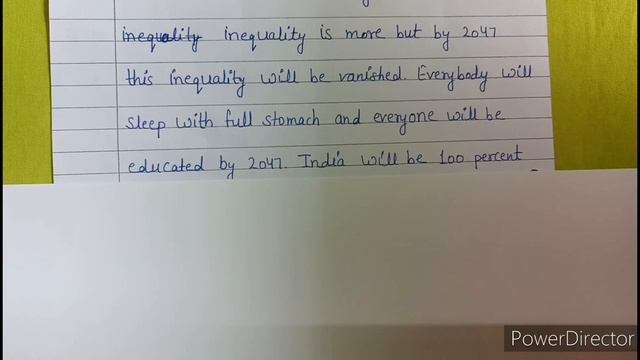 inequality inequality is more but by 2047
this inequality will be vanished. Everybody will
sleep with full stomach and everyone will be
educated by 2047. India will be 100 percent
PowerDirector